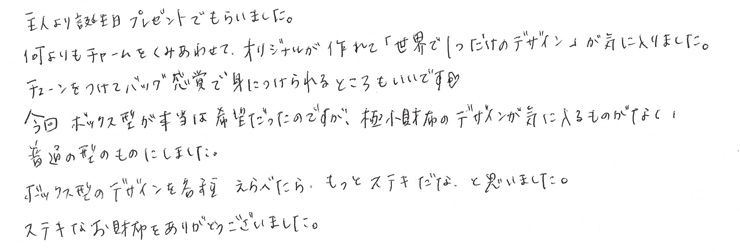 主人より誕生日プレゼントでもらいました。
何よりもチャームをくみあわせて、オリジナルが作れて「世界で1つだけのデザイン」が気に入りました。
チェーンをつけてバッグ感覚で身につけられるところもいいです♡
今回 ボックス型が本当は希望だったのですが、極小財布のデザインが気に入るものがなく、
普通の型のものにしました。
ボックス型のデザインを各種 えらべたら、もっとステキだな、と思いました。
ステキなお財布をありがとうございました。